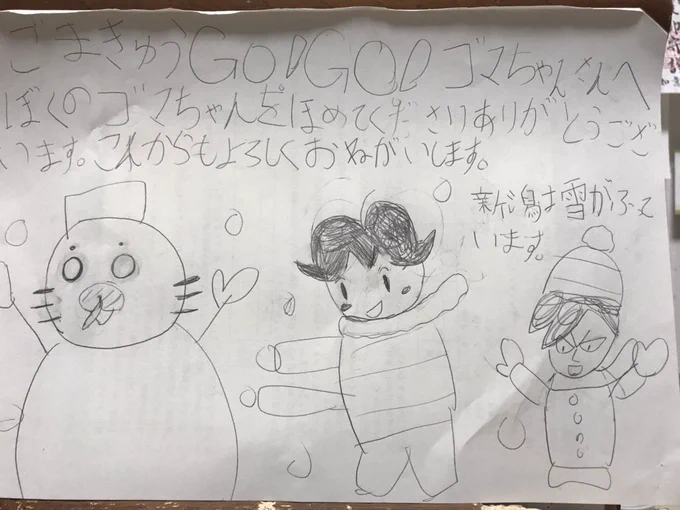 ごまきゅうGO!GO!ゴマちゃんさんへ
ぼくのゴマちゃんをほめてくださりありがとうござ
います。これからもよろしくおねがいします。
新潟は雪がふって
います。